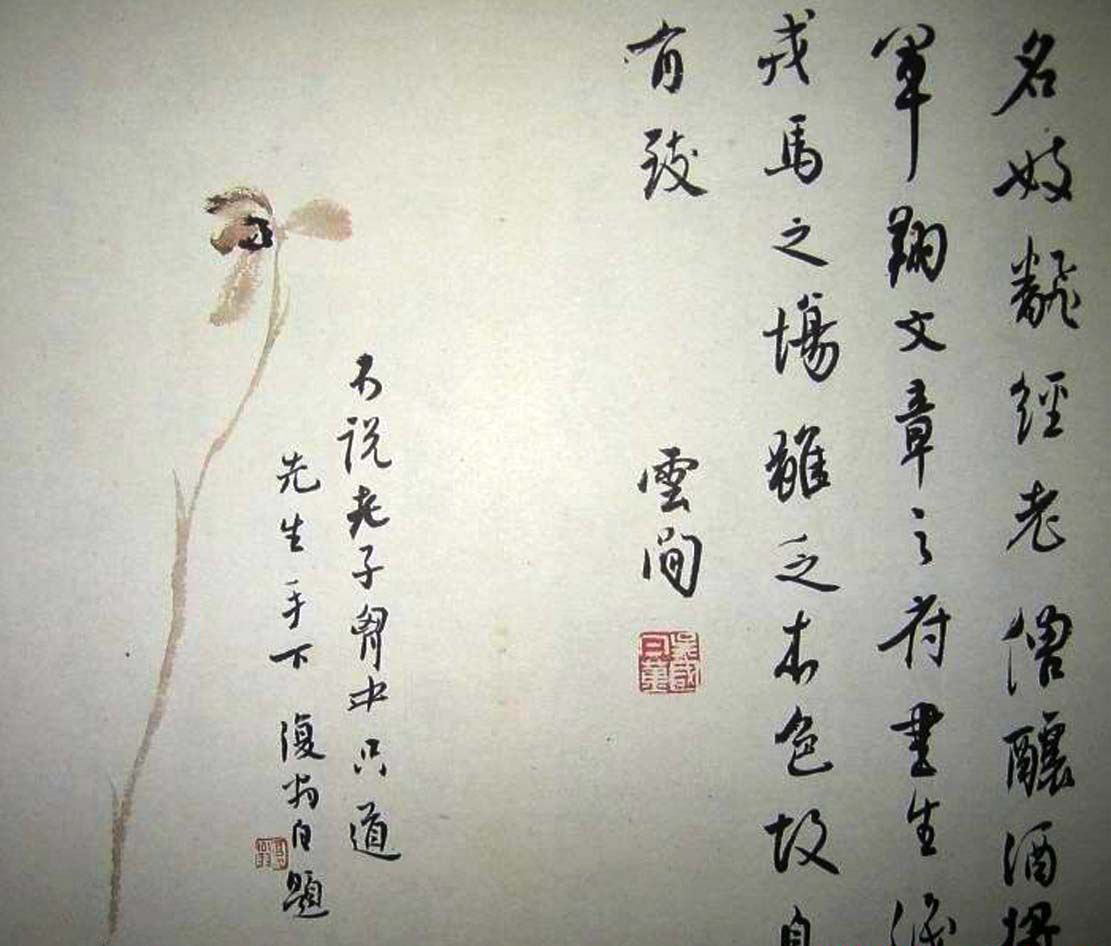 名妓飜經老僧釀酒將
軍翔文章之府書生
戎馬之場雖乏本色故自
有致 雲間
不説老子胷中只道
先生手下 復自題